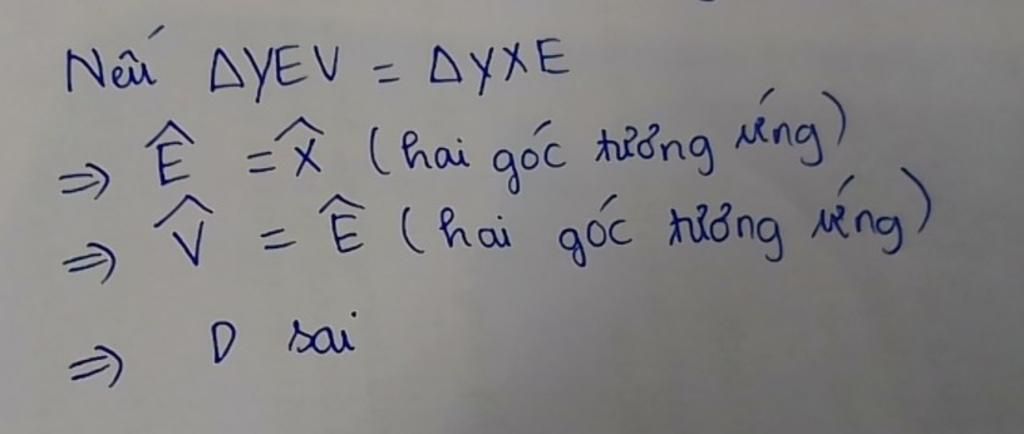 Nếu ΔYEV = ΔYXE
⇒ Ê = X̂ (hai góc tương ứng)
⇒ V̂ = Ê (hai góc tương ứng)
⇒ D sai